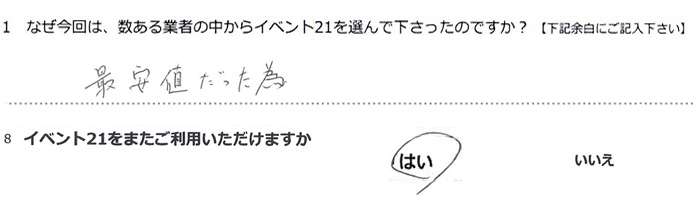 1 なぜ今回は、数ある業者の中からイベント21を選んで下さったのですか？【下記余白にご記入下さい】
最安値だった為
8 イベント21をまたご利用いただけますか
はい いいえ